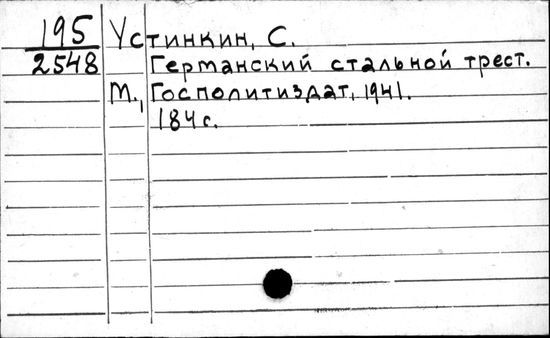 195 Устинкин, С.
2548 Германский стальной трест.
М., Госполитиздат, 1941.
184 с.